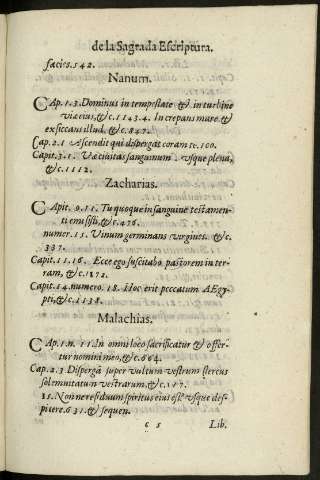 de la Sagrada Escriptura.
facies.542.
Nanum.
CAp.1.3.Dominus in tempestate & in turbine
viæ eius,&c.1143.4. Increpans mare &
exsiccans illud. &c.847.
Cap.2.1 Ascendit qui dispergat coram te.100.
Capit.3.1. Væ civitas sanguinum. vsque plena,
&c.1112.
Zacharias.
CApit. 9.11. Tu quoque in sanguine testamen-
ti emisisti,&c.476.
numer.15. Vinum germinans virgines. &c.
337.
Capit.11.16. Ecce ego suscitabo pastorem in ter-
ram,&c.1272.
Capit.14.numero.18. Hoc erit peccatum AEgy-
pti,&c.1138.
Malachias.
CAp.1.n.11.In omni loco sacrificatur & offer-
tur nomini meo,&c.664.
Cap.2.3 Dispergã super vultum vestrum stercus
solemnitatum vestrarum,&c.
15. Non ne residuum spiritus eius est? vsque des-
picere.631.& sequen.
c 5 Lib.